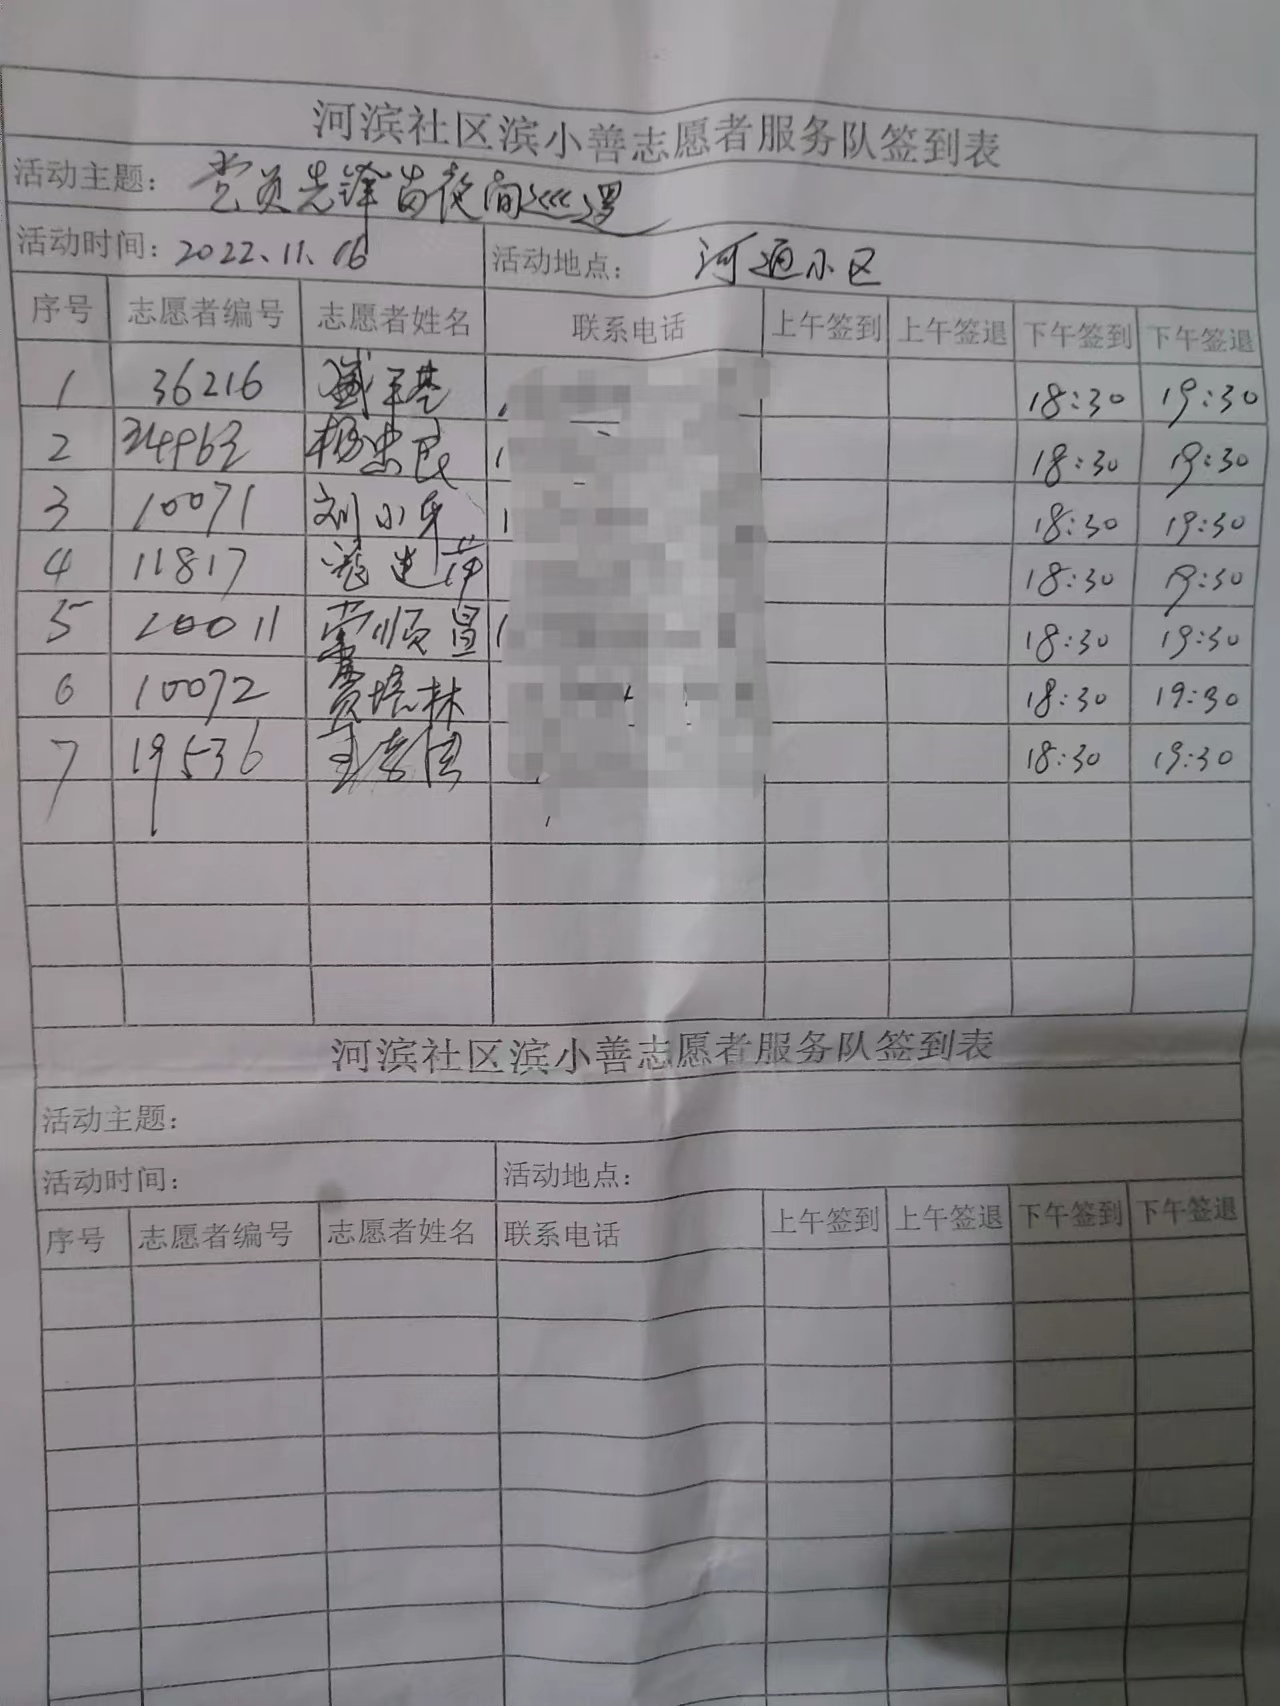 河滨社区滨小善志愿者服务队签到表
活动主题: 党员先锋岗夜间巡逻
活动时间: 2022.11.16 活动地点: 河通小区
序号 志愿者编号 志愿者姓名 联系电话 上午签到 上午签退 下午签到 下午签退
1 36216 18:30 19:30
2 34963 杨忠民 1 18:30 19:30
3 10071 刘小牙 1 18:30 19:30
4 11817 18:30 19:30
5 20011 顺昌 1 18:30 19:30
6 10072 贾培林 18:30 19:30
7 19536 18:30 19:30
河滨社区滨小善志愿者服务队签到表
活动主题:
活动时间: 活动地点:
序号 志愿者编号 志愿者姓名 联系电话 上午签到 上午签退 下午签到 下午签退